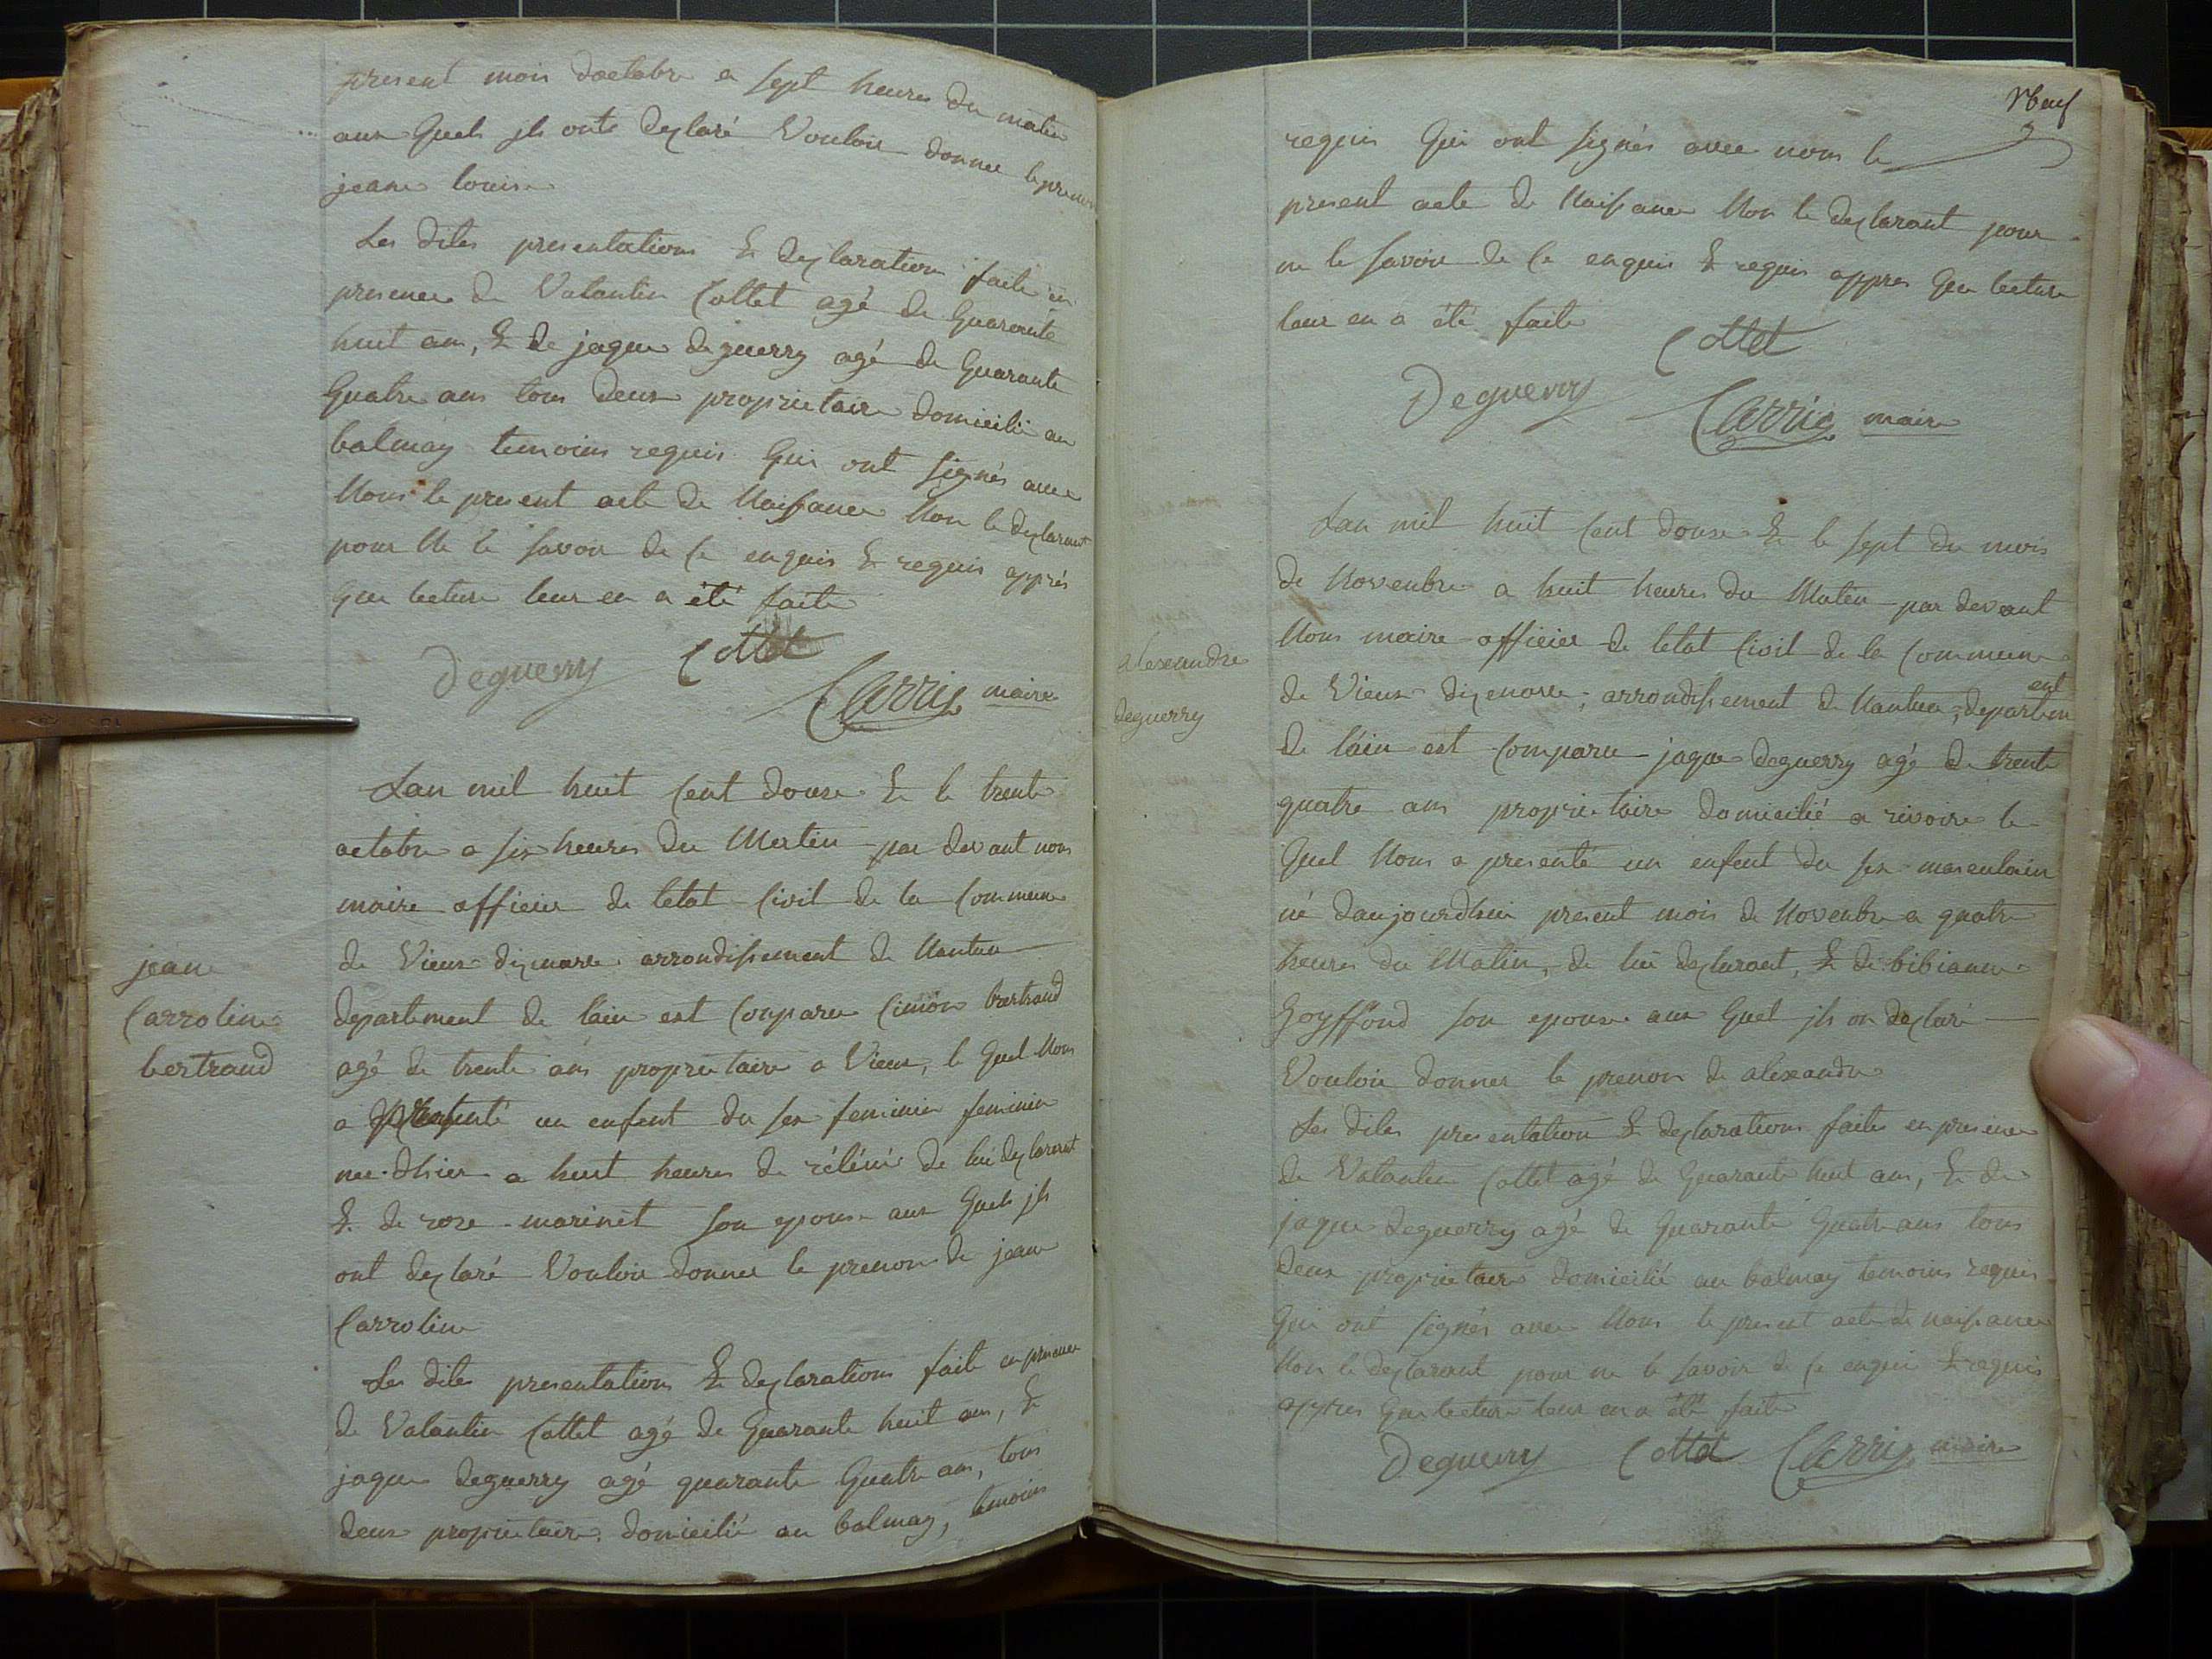 present mois doctobre a sept heures du matin
aux Quels jls onts declaré Vouloir donner le prenom
jeane louise
Les dites presentations & declaration faite en
presence de Valantin Cottet agé de Quarante
huit ans, & de jaque deguerry agé de Quarante
Quatre ans tous deux proprietaire domicilié au
balmay temoins requis Qui ont signés avec
Nous le present acte de Naissance Non le declarant
pour Ne le savoir de ce enquis & requis apprés
Que lecture leur en a été faite
Deguerry Cottet
Carrig maire
Lan mil huit Cent douse & le trente
octobre a six heures du Matin par devant nous
maire officier de letat Civil de la Commune
de Vieux dizenave arrondissement de Nantua
jeane
Carroline
bertrand
departement de lain est Conparu Cimon bertrand
agé de trente ans proprietaire a Vieux, le Quel Nous
a presenté un enfent du sex feminin feminin
nee dhier a huit heures de rélévé de lui declarant
& de rose marinet son epouse aux Quels jls
ont declaré Vouloir donner le prenon de jeane
Carroline
Les dites presentations & declarations faite en presence
de Valantin Cottet agé de Quarante huit ans, &
jaque deguerry agé quarante Quatre ans, tous
deux proprietaire domicilié au balmay, temoins
Neuf
requis Qui ont signés avec nous le
present acte de Naissance Non le declarant pour
ne le savoir de ce enquis & requis appres Que lecture
leur en a été faite
Cottet
Deguerry
Carrig maire
Lan mil huit Cent douse & le sept du mois
de Novenbre a huit heures du Matin par devant
Nous maire officier de letat Civil de la Commune
alexandre
deguerry
de Vieux dizenave, arrondissement de Nantua, departement
de láin est Comparu jaque deguerry agé de trente
quatre ans proprietaire domicilié a rivoire le
Quel Nous a presenté un enfent du sex masculain
né daujourdhui present mois de Novenbre a quatre
heures du Matin, de lui declarant, & de bibianne
Goyffond son epouse aux Quel jls on declaré
Vouloir donner le prenon de alexandre
Les dites presentation & declarations faites en presence
de Valantin Cottet agé de Quarante huit ans, & de
jaque deguerry agé de Quarante Quatre ans tous
deux proprietaire domicilié au balmay temoins requis
Qui ont signés avec Nous le present acte de naissance
Non le declarant pour ne le savoir de ce enquis & requis
appres Que lecture leur en a été faite
Deguerry Cottet Carrig maire